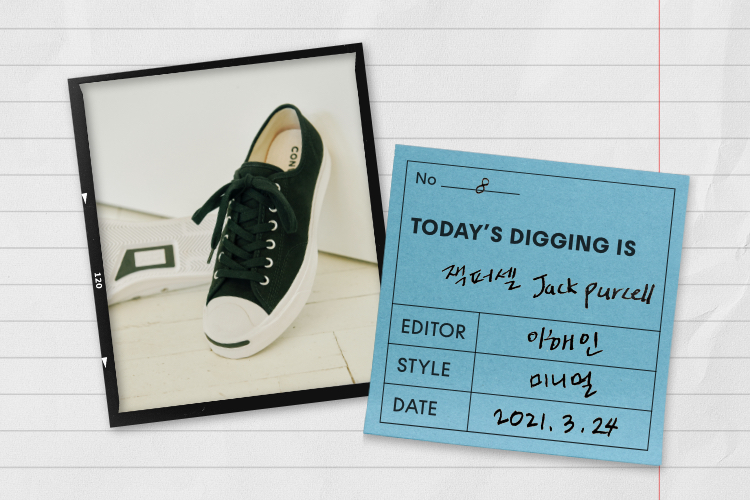 CON
120
No 8
TODAY'S DIGGING IS
잭퍼셀 Jack purcell
EDITOR 이해인
STYLE 미니멀
DATE 2021.3.24